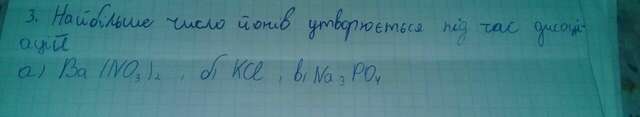 3. Найбільше число йонів утворюється під час дисоці-
ації
а) Ba(NO₃)₂, б) KCl, в) Na₃PO₄